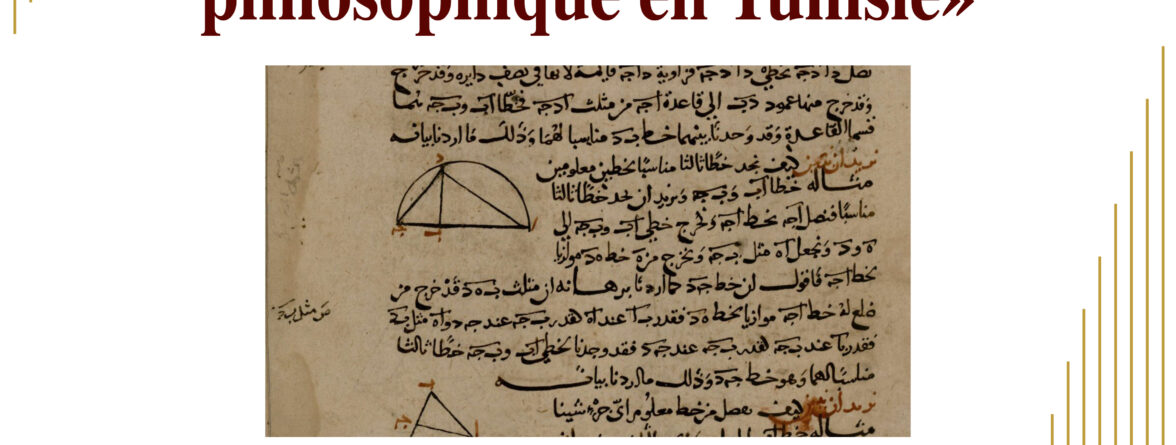 philosophique en Tunisie»
نصل دا دجه بخطي دا دجه فزاوية داجه قايمة لانها في نصف دايره وقد خرج
وقد خرج منها عمود دب الي قاعدة اجه من مثلث ادجه فخطا اب وبجه نما
قسما القاعدة وقد وجدنا بينهما خط بد مناسبا لهما وذلك ما اردنا بيانه
نريد ان نبين كيف نجد خطا ثالثا مناسبا لخطين معلومين
مثاله خطا اب وبجه ونريد ان نجد خطا ثالثا
مناسبا فنصل اجه بخط اجه ونخرج خطي اب وبجه الي
ه ود ونجعل اه مثل بجه ونخرج من ه خط هد موازيا
لخط اجه فاقول ان خط جد كما اردنا برهانه ان مثلث بهد قد خرج من
ضلع له خط اجه موازيا لخط هد فقدر با عند اه كقدر بجه عند جد واه مثل بجه
فقدر با عند بجه كقدر بجه عند جد فقد وجدنا لخطي اب وبجه خطا ثالثا
مناسبا لهما وهو خط جد وذلك ما اردنا بيانه
نريد ان نبين كيف نفصل من خط معلوم اي جزء شينا
مثاله خط اب